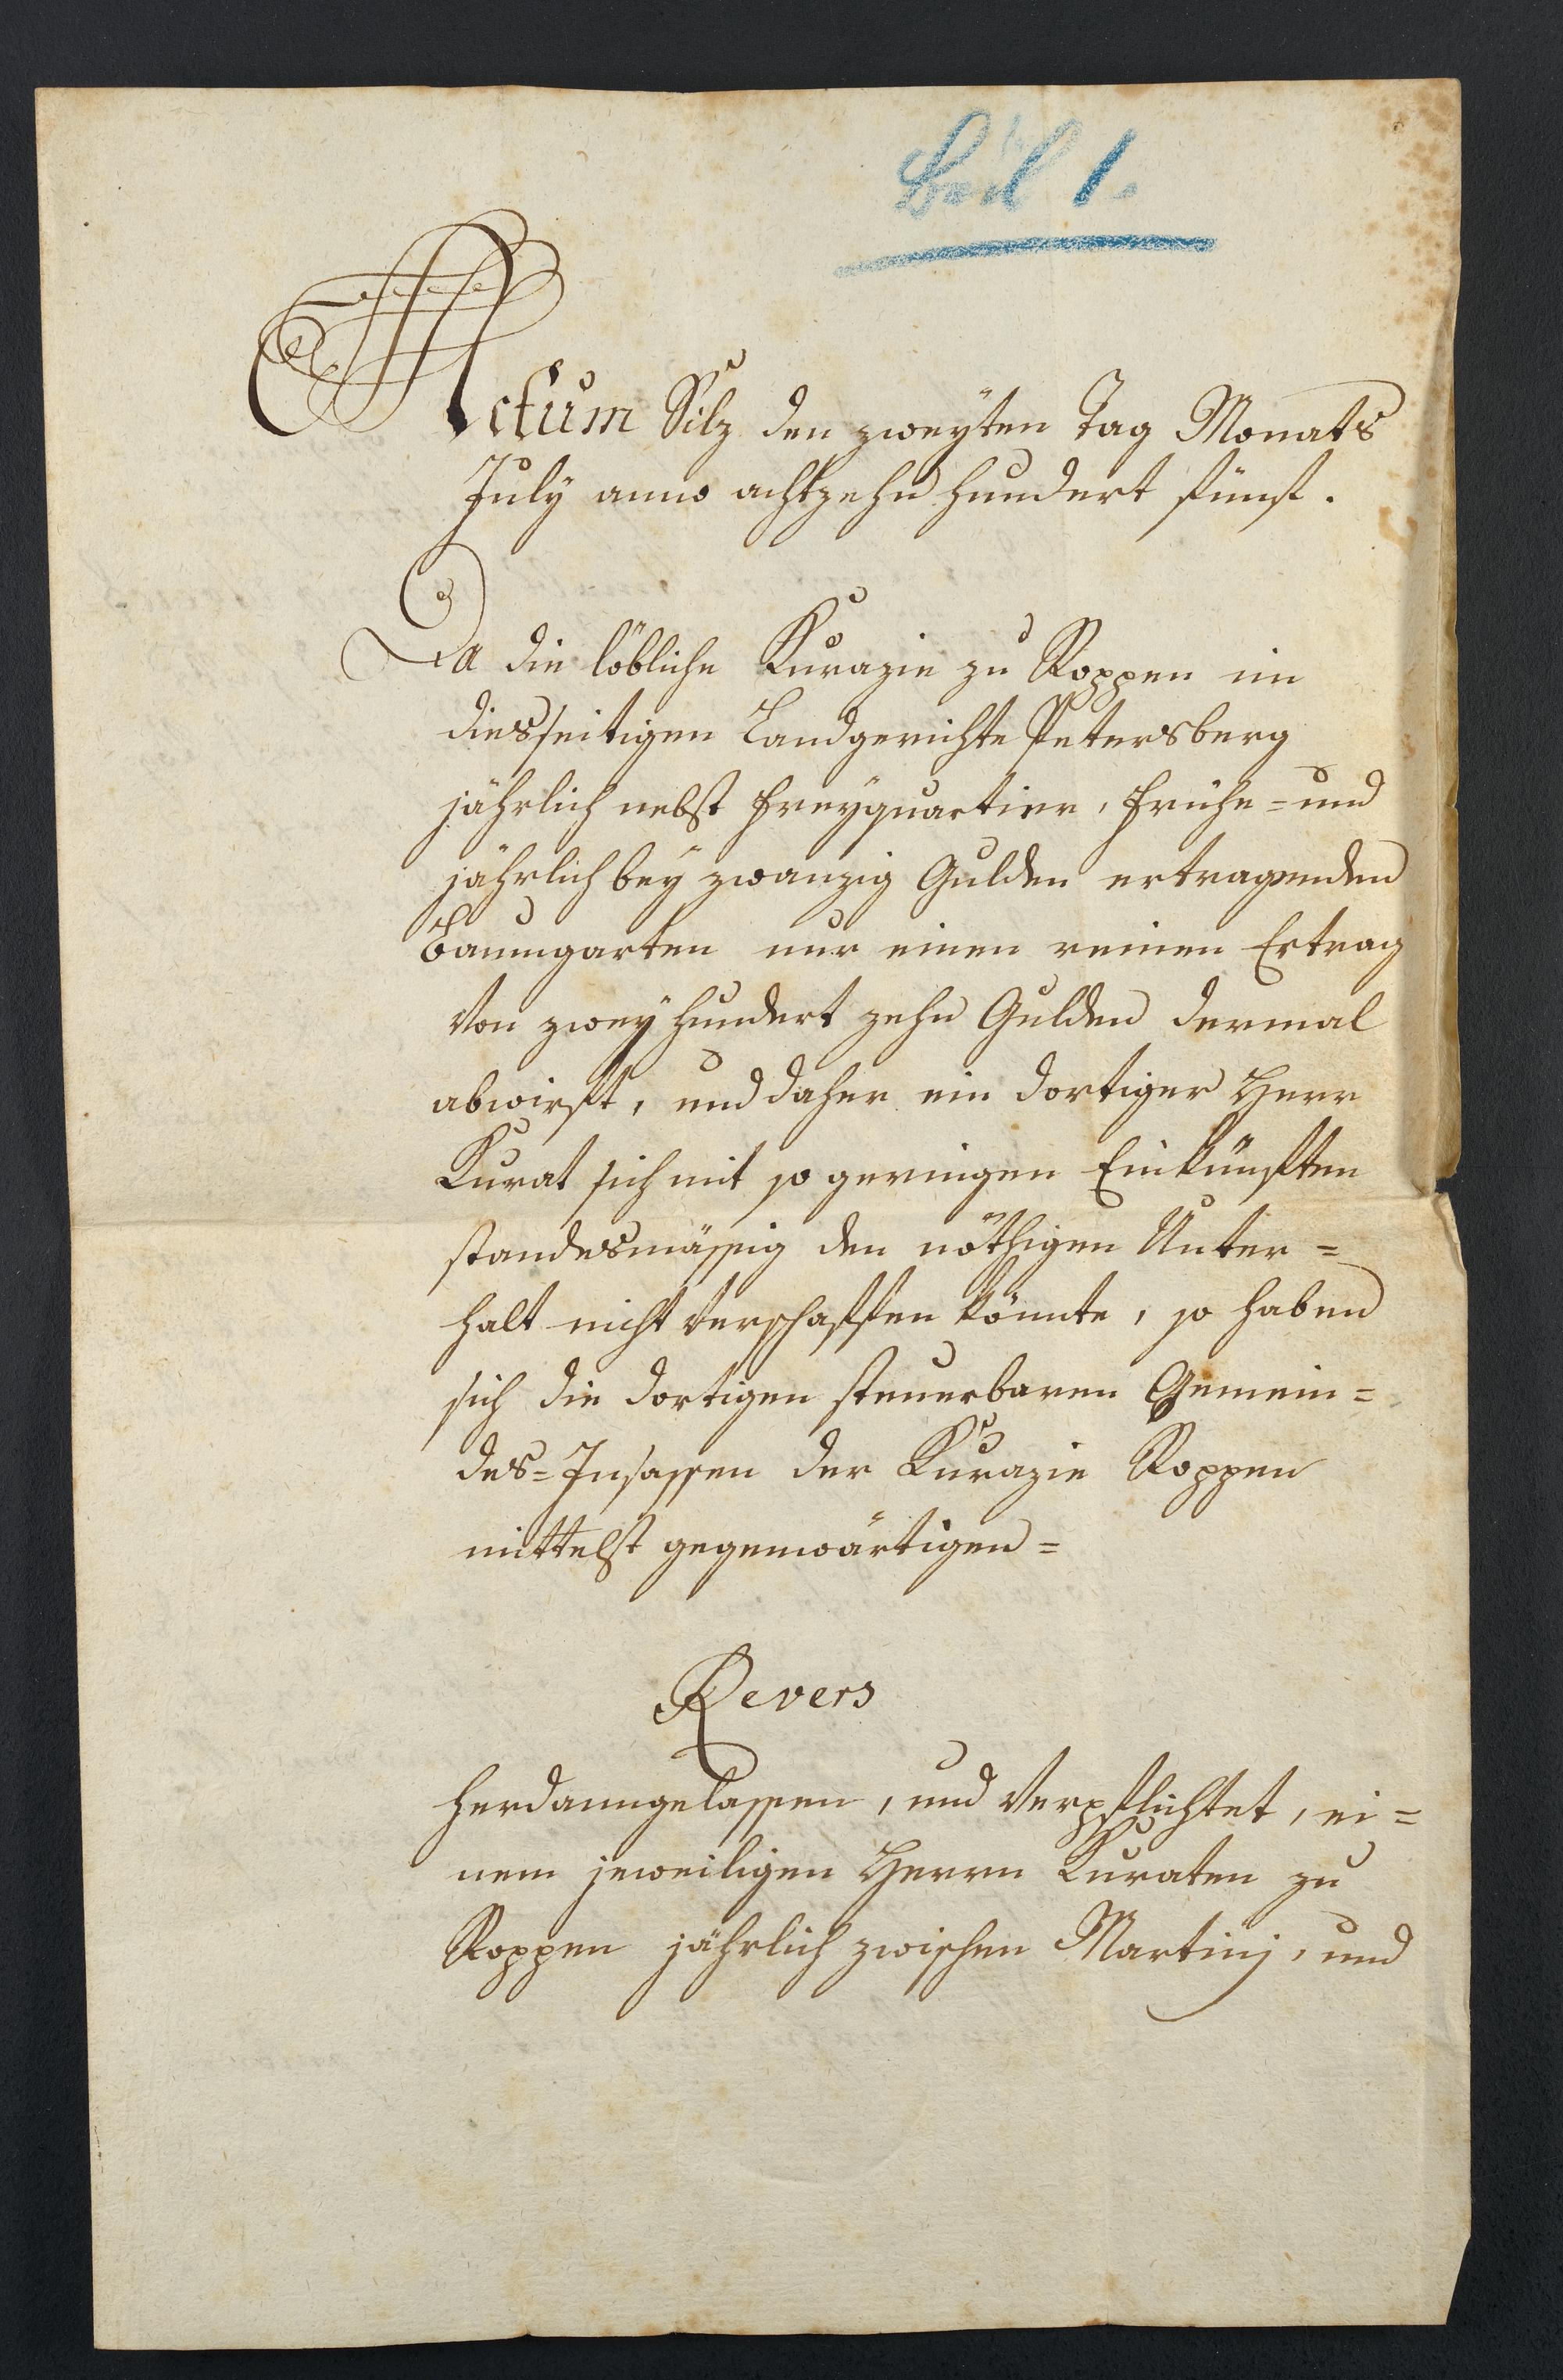 Beil 1.
Actum Silz den zweyten Tag Monats
July anno achtzehn hundert fünf.
Da die löbliche Kurazie zu Roppen im
diesseitigen Landgerichte Petersberg
jährlich nebst freyquartier, frühe= und
jährlich bey zwanzig Gulden ertragenden
Baumgarten nur einen reinen Ertrag
von zwey hundert zehn Gulden dermal
abwirft, und daher ein dortiger Herr
Kurat sich mit so geringen Einkünften
standesmässig den nöthigen Unter=
halt nicht verschaffen könnte, so haben
sich die dortigen steuerbaren Gemein=
des=Insassen der Kurazie Roppen
mittelst gegenwärtigen=
Revers
herdanngelassen, und verpflichtet, ei=
nem jeweiligen Herrn Kuraten zu
Roppen jährlich zwischen Martinj, und